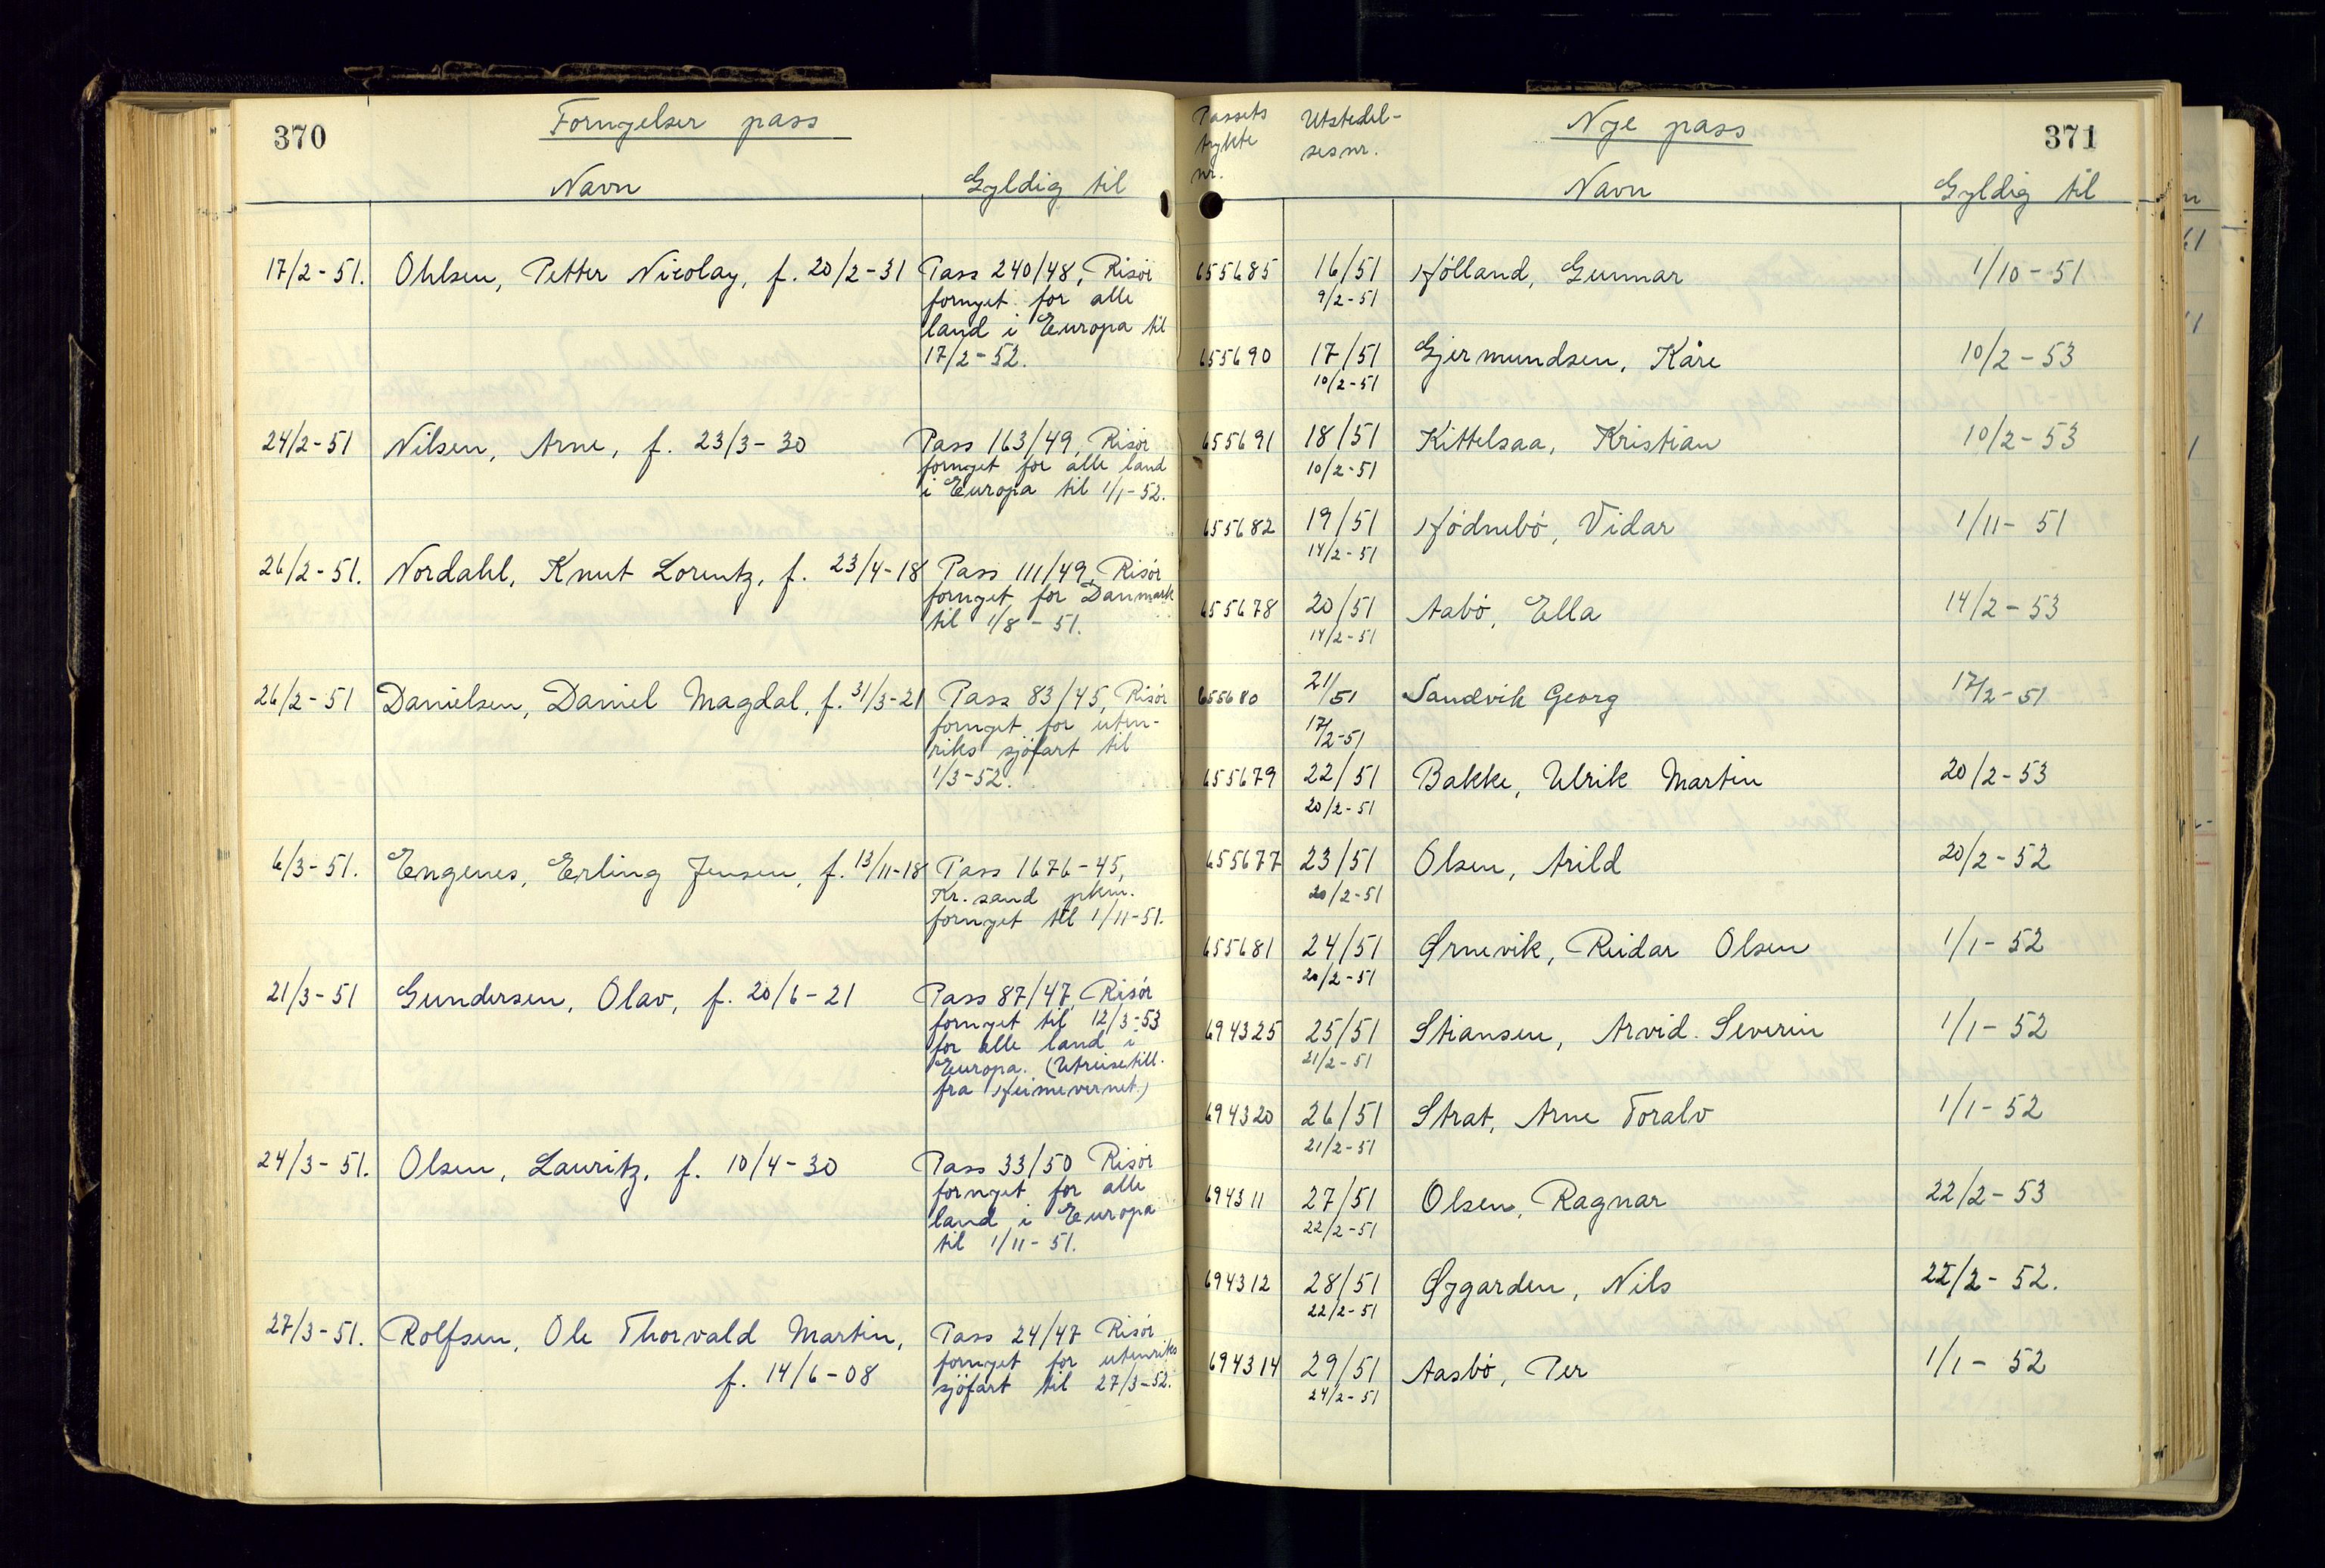 370
Fornyelser pass
Navn
Gyldig til
17/2-51. Ohlsen, Petter Nicolay, f. 20/2-31 Pass 240/48, Risör
fornyet for alle
land i Europa til
17/2-52.
24/2-51 Nilsen, Arne, f. 23/3-30 Pass 163/49, Risör
fornyet for alle land
i Europa til 1/1-52.
26/2-51. Nordahl, Knut Lorentz, f. 23/4-18 Pass 111/49, Risör
fornyet for Danmark
til 1/8-51.
26/2-51 Danielsen, Daniel Magdal, f. 31/3-21 Pass 83/45, Risör
fornyet for uten-
riks sjöfart til
1/3-52.
6/3-51. Engenes, Erling Jensen, f. 13/11-18 Pass 1676-45,
Kr.sand pkm.
fornyet til 1/11-51.
21/3-51 Gundersen, Olav, f. 20/6-21 Pass 87/47, Risör
fornyet til 12/3-53
for alle land i
Europa. (Utreisetill.
fra Heimevernet.)
24/3-51. Olsen, Lauritz, f. 10/4-30 Pass 33/50 Risör
fornyet for alle
land i Europa
til 1/11-51.
27/3-51. Rolfsen, Ole Thorvald Martin, Pass 24/47 Risör
f. 14/6-08 fornyet for utenriks
sjöfart til 27/3-52.
Passets
trykte
nr.
Utstedel-
sesnr.
Nye pass
371
Navn
Gyldig til
655685 16/51 Hölland, Gunnar 1/10-51
9/2-51
655690 17/51 Gjermundsen, Kåre 10/2-53
10/2-51
655691 18/51 Kittelsaa, Kristian 10/2-53
10/2-51
655682 19/51 Hödnebö, Vidar 1/11-51
14/2-51
655678 20/51 Aabö, Ella 14/2-53
14/2-51
655680 21/51 Sandvik Georg 17/2-51
17/2-51
655679 22/51 Bakke, Ulrik Martin 20/2-53
20/2-51
655677 23/51 Olsen, Arild 20/2-52
20/2-51
655681 24/51 Ørnevik, Reidar Olsen 1/1-52
20/2-51
694325 25/51 Stiansen, Arvid Severin 1/1-52
21/2-51
694320 26/51 Strat, Arne Toralv 1/1-52
21/2-51
694311 27/51 Olsen, Ragnar 22/2-53
22/2-51
694312 28/51 Øygarden, Nils 22/2-52.
22/2-51
694314 29/51 Aasbö, Per 1/1-52
24/2-51